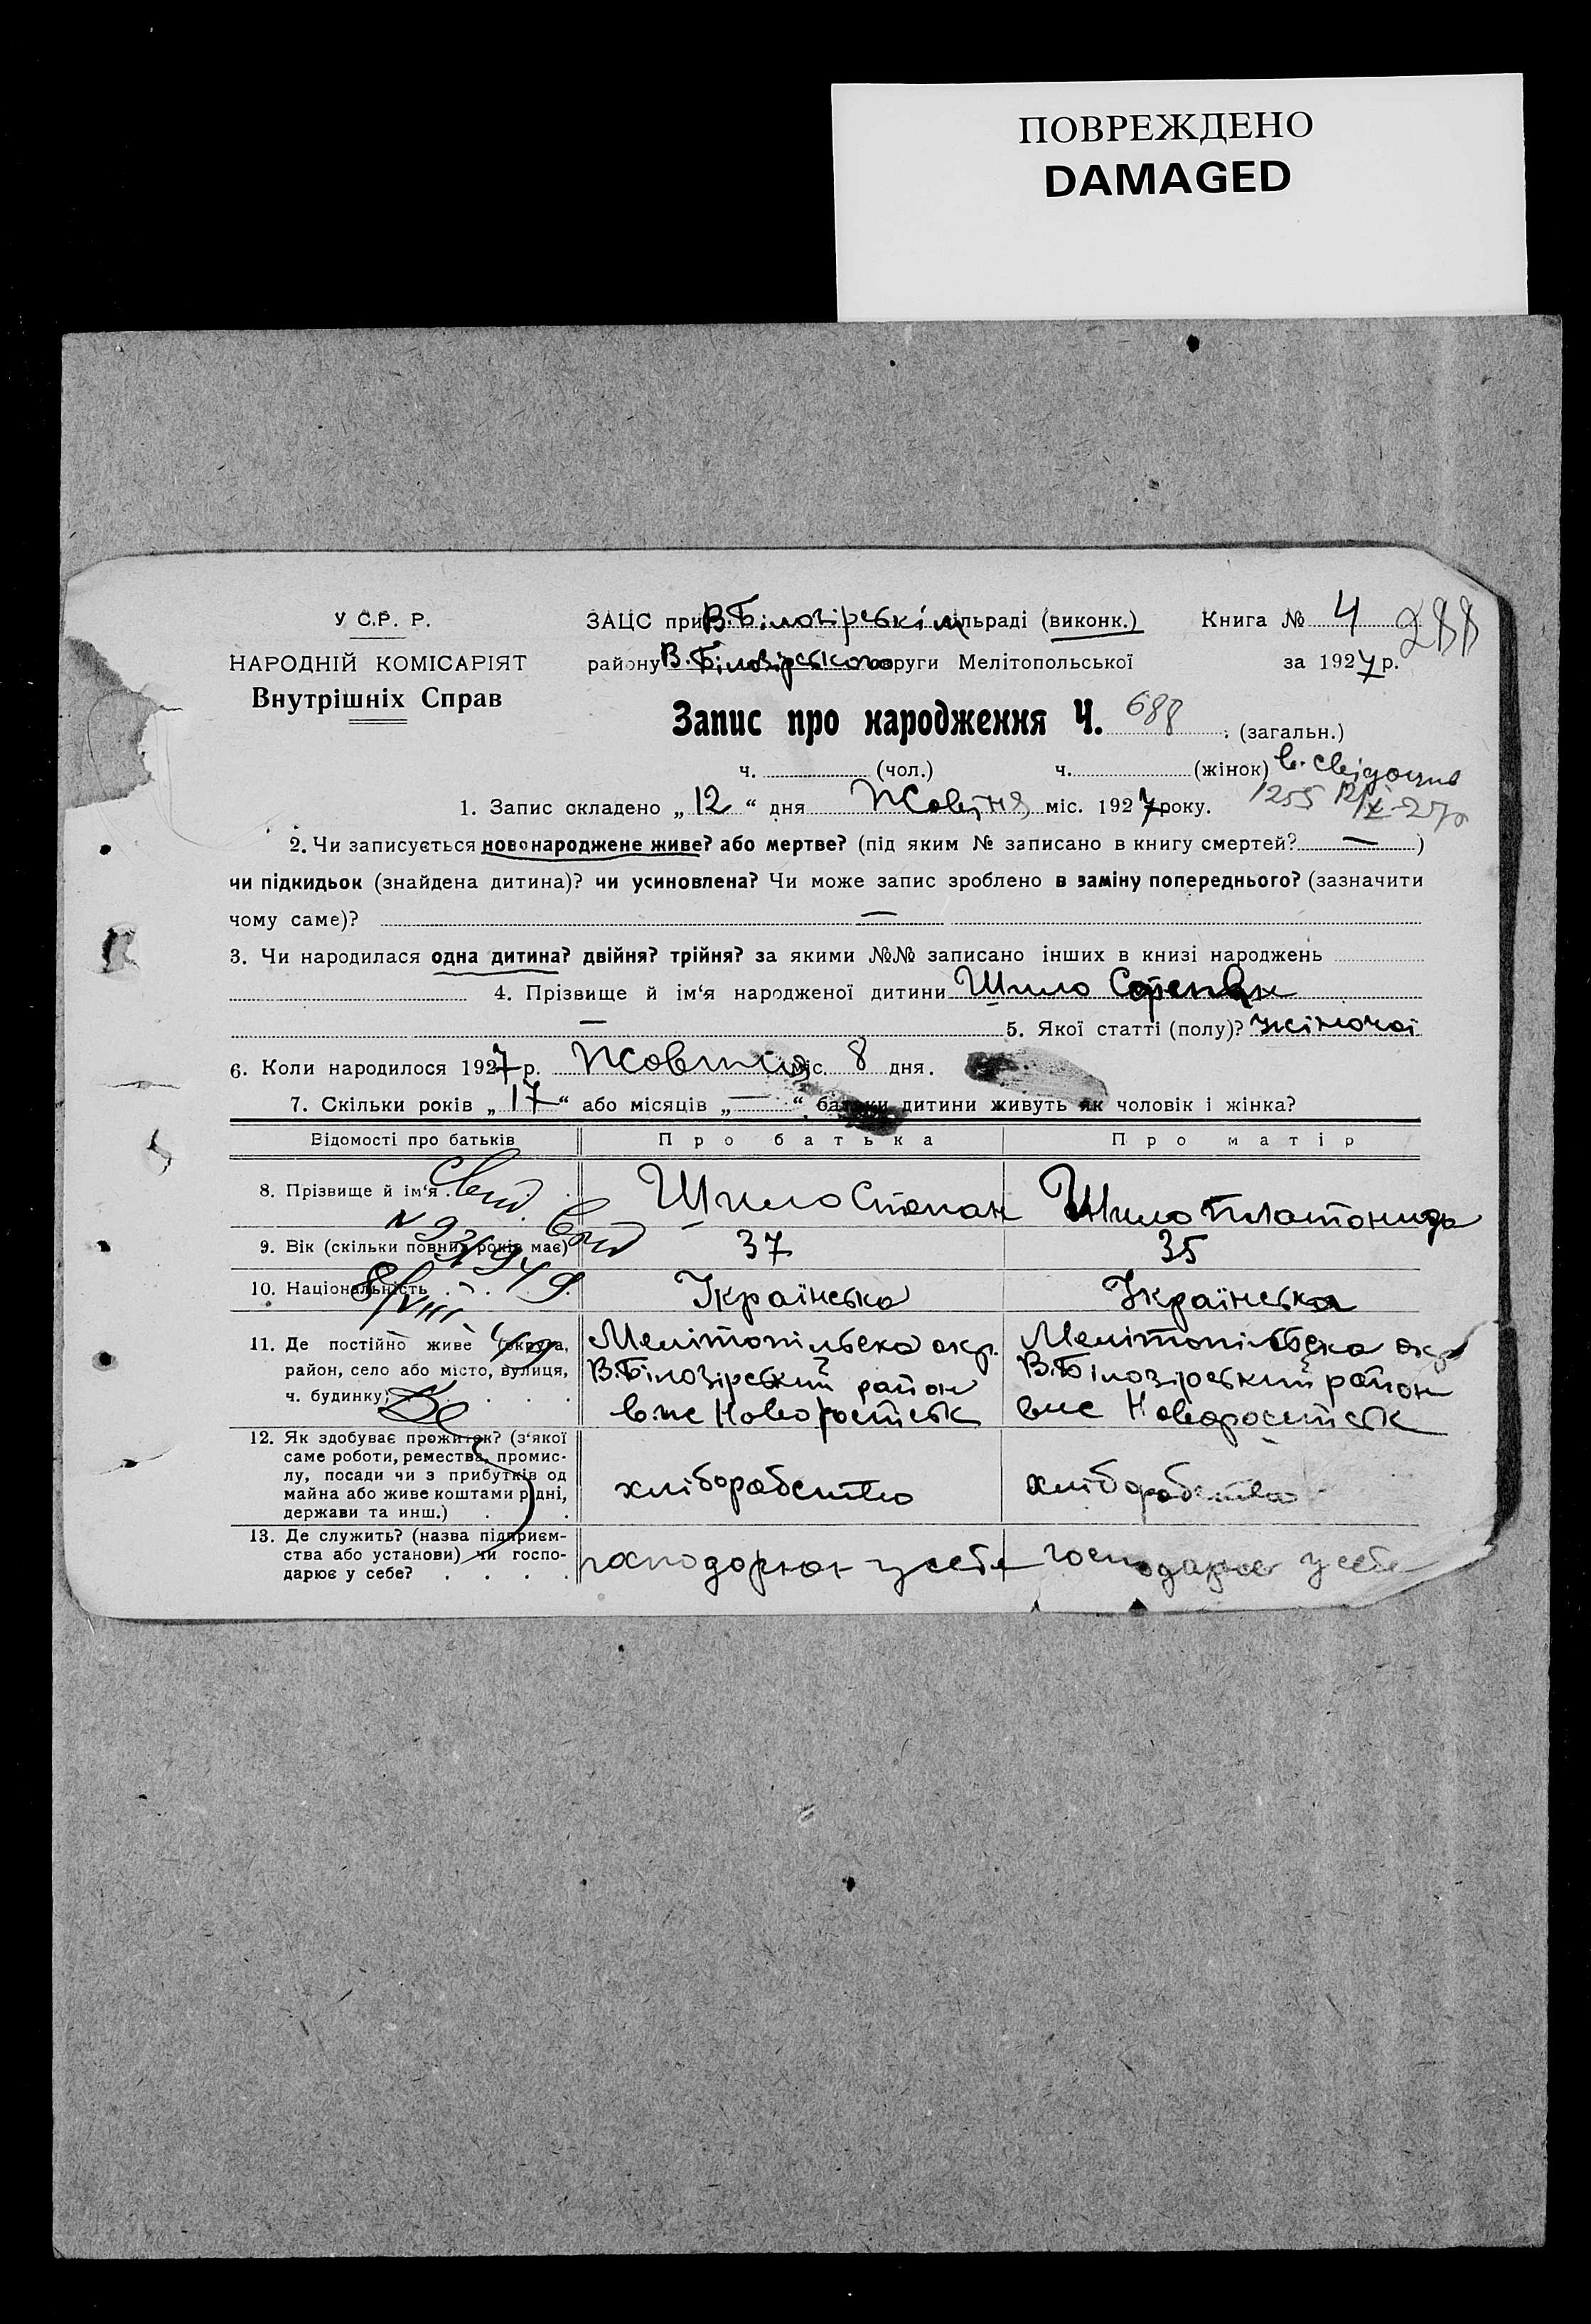 ПОВРЕЖДЕНО
DAMAGED
У С.Р. Р.
НАРОДНІЙ КОМІСАРІЯТ
Внутрішніх Справ
ЗАЦС при В.Білозірскім сільраді (виконк.)
району В.Білозірського округи Мелітопольської
Книга № 4
288
за 1927 р.
Запис про народження Ч. 688 (загальн.)
ч. (чол.) ч. (жінок)
в. свідоцтв
1255 12/X-27р
1. Запис складено „12“ дня Жовтня міс. 1927 року.
2. Чи записується новонароджене живе? або мертве? (під яким № записано в книгу смертей? — )
чи підкидьок (знайдена дитина)? чи усиновлена? Чи може запис зроблено в заміну попереднього? (зазначити
чому саме)? —
3. Чи народилася одна дитина? двійня? трійня? за якими №№ записано інших в книзі народжень
4. Прізвище й ім‘я народженої дитини Шило
— 5. Якої статті (полу)? жіночої
6. Коли народилося 1927 р. Жовтня міс. 8 дня.
7. Скільки років „17“ або місяців „—“ батьки дитини живуть як чоловік і жінка?
Відомості про батьків Про батька Про матір
8. Прізвище й ім‘я Шило Степан Шило Платонида
9. Вік (скільки повних років має) 37 35
10. Національність Українська Українська
11. Де постійно живе (округа,
район, село або місто, вулиця,
ч. будинку)
Мелітопільска окр.
В.Білозірский район
Мелітопільска окр
В.Білозірский район
12. Як здобуває прожиток? (з‘якої
саме роботи, ремества, промис-
лу, посади чи з прибутків од
майна або живе коштами рідні,
держави та инш.)
хліборобство хліборобство
13. Де служить? (назва підприєм-
ства або установи) чи госпо-
дарює у себе?
господарює у себе господарює у себе